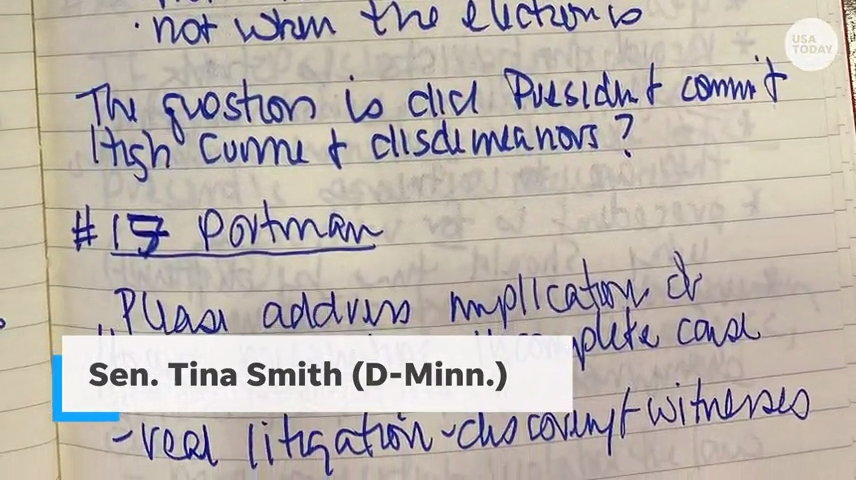 · not when the election is
USA TODAY
The question is did President commit
High Crime & disdemeanors?
# 17 Portman
Please address implication of
complete case
Sen. Tina Smith (D-Minn.)
- real litigation - discovery + witnesses